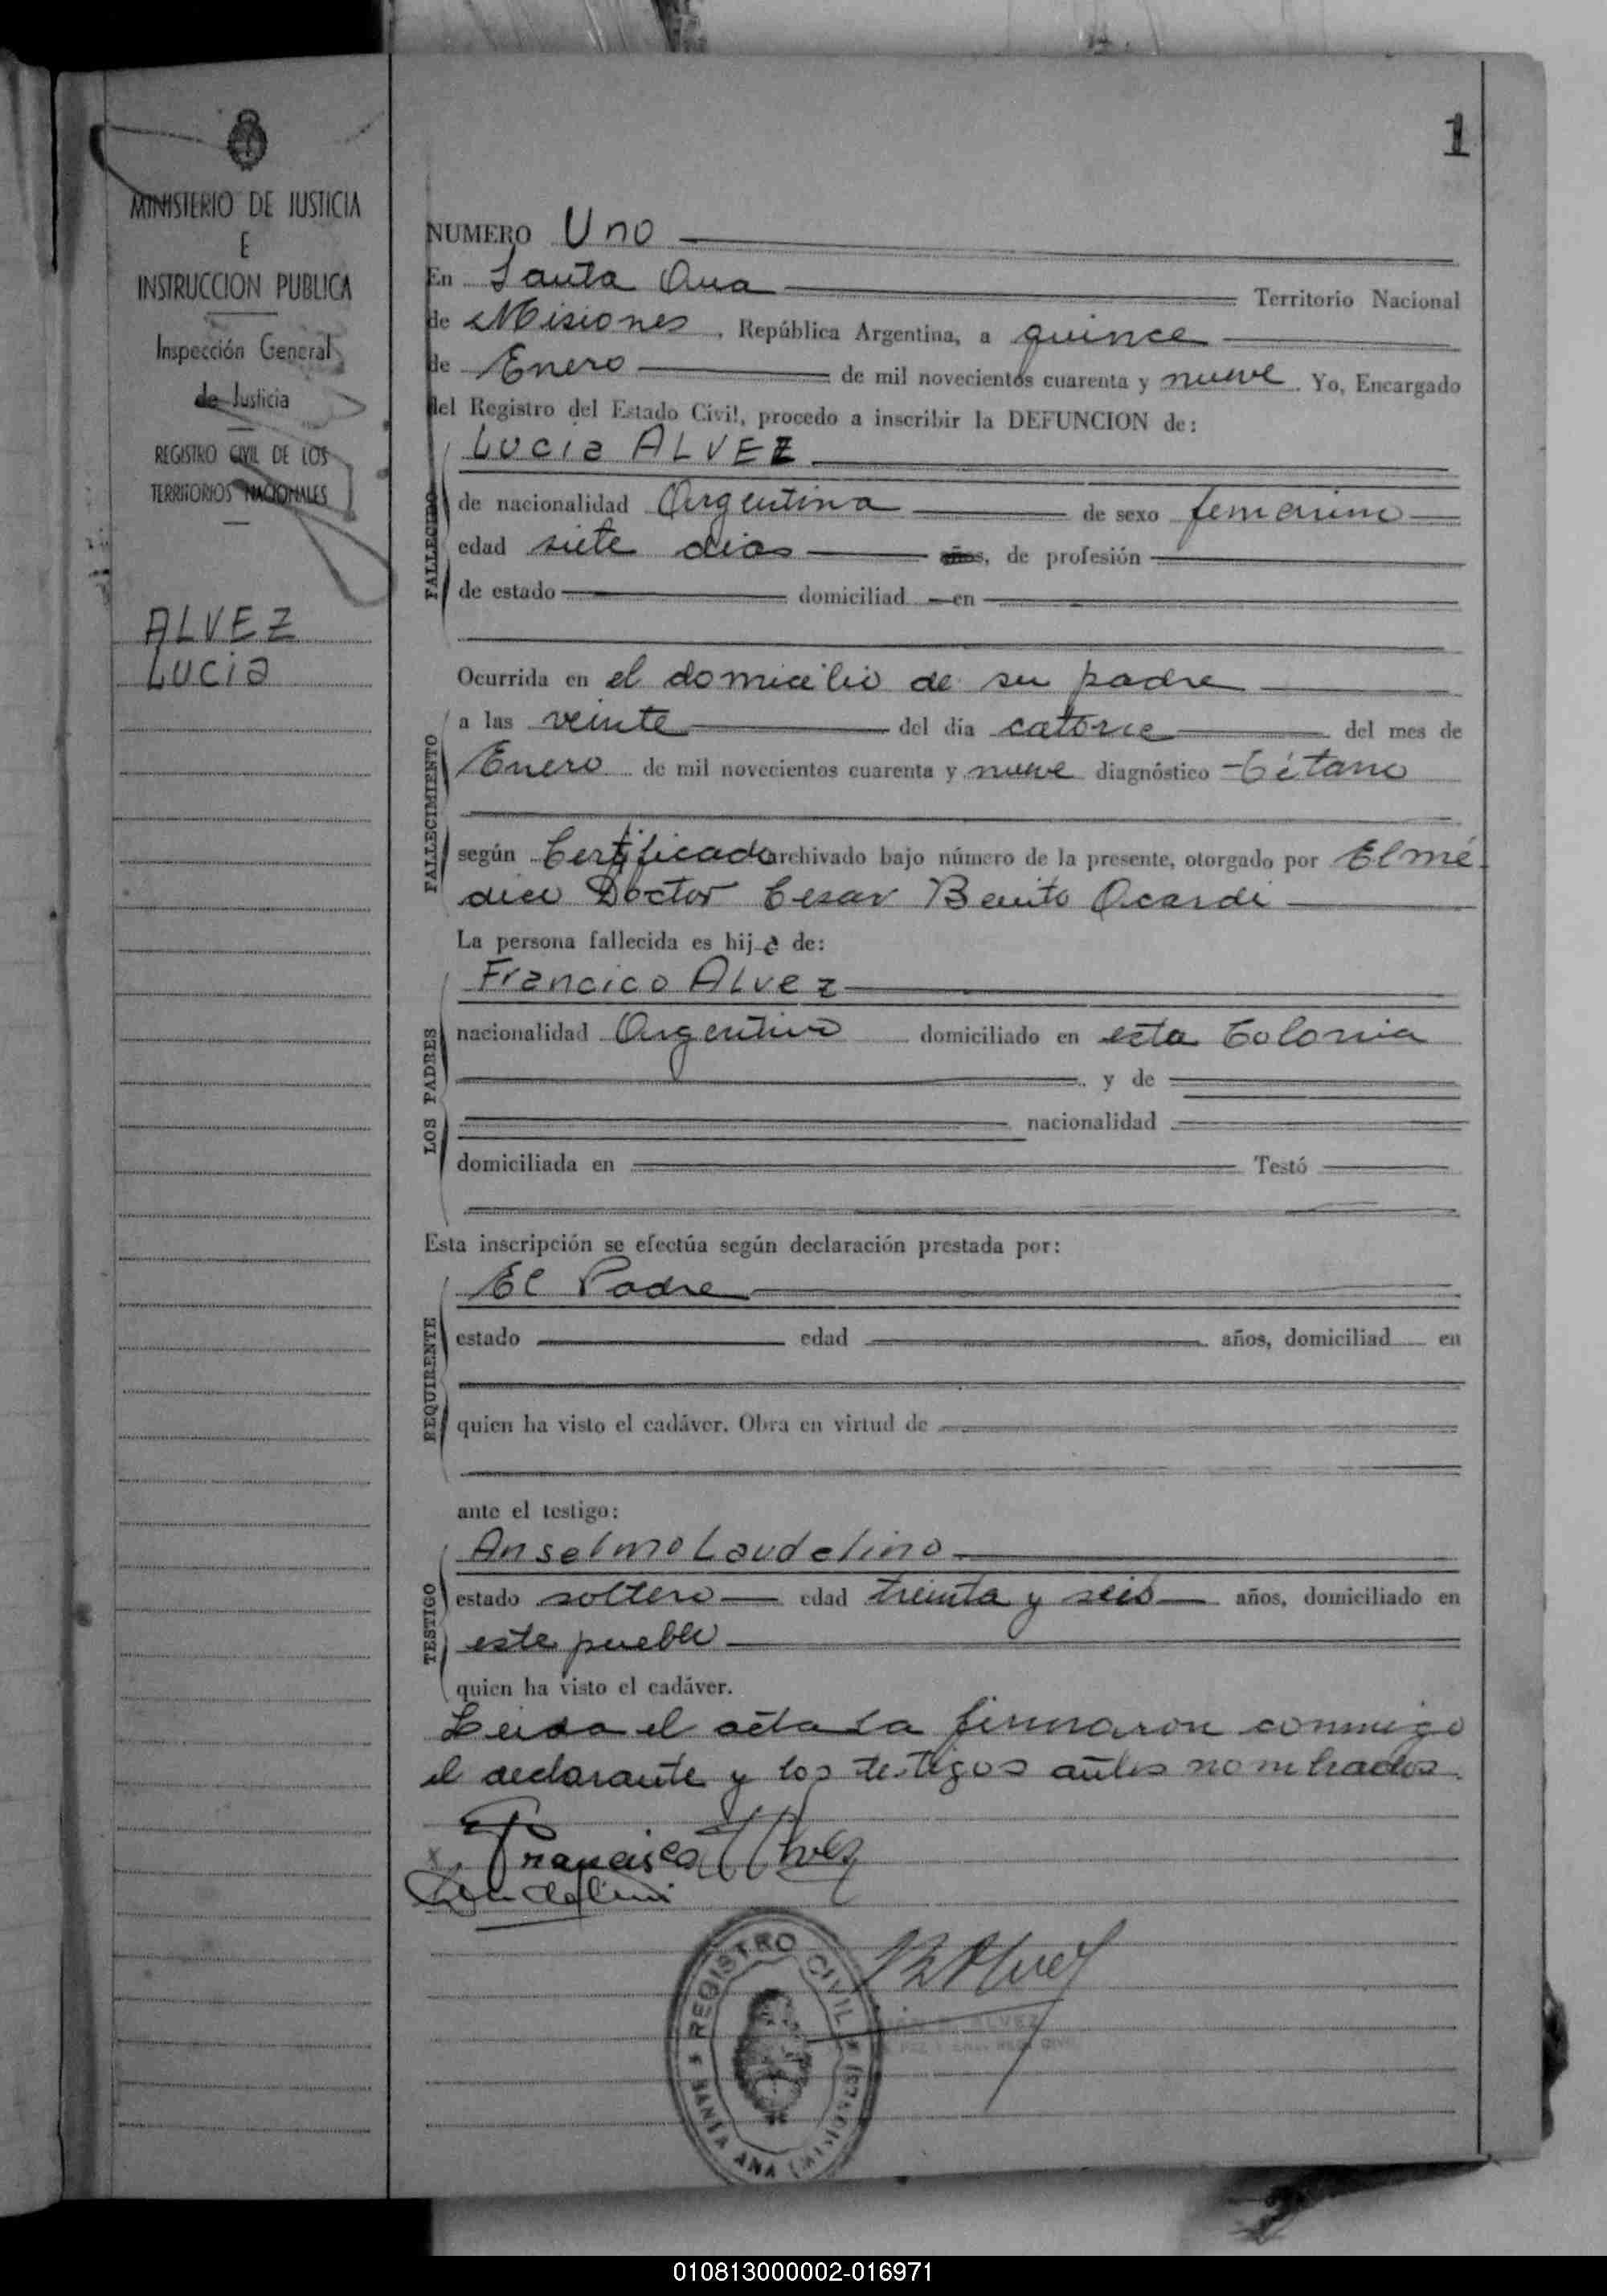 1
MINISTERIO DE JUSTICIA
E
INSTRUCCION PUBLICA
Inspección General
de Justicia
REGISTRO CIVIL DE LOS
TERRITORIOS NACIONALES
ALVEZ
Lucia
NUMERO Uno
En Santa Ana Territorio Nacional
de Misiones, República Argentina, a quince
de Enero de mil novecientos cuarenta y nueve. Yo, Encargado
del Registro del Estado Civil, procedo a inscribir la DEFUNCION de:
Lucia ALVEZ
FALLECIDO
de nacionalidad Argentina de sexo femenino
edad siete dias años, de profesión
de estado domiciliad en
Ocurrida en el domicilio de su padre
FALLECIMIENTO
a las veinte del día catorce del mes de
Enero de mil novecientos cuarenta y nueve diagnóstico Tétano
según Certificado archivado bajo número de la presente, otorgado por El mé-
dico Doctor Cesar Benito Acardi
La persona fallecida es hija de:
LOS PADRES
Francico Alvez
nacionalidad Argentino domiciliado en esta Colonia
y de
nacionalidad
domiciliada en Testó
Esta inscripción se efectúa según declaración prestada por:
REQUIRENTE
El Padre
estado edad años, domiciliad en
quien ha visto el cadáver. Obra en virtud de
ante el testigo:
TESTIGO
Anselmo Laudelino
estado soltero edad treinta y seis años, domiciliado en
este pueblo
quien ha visto el cadáver.
Leida el acta la firmaron conmigo
el declarante y los testigos antes nombrados.
x Francisco Alvez
REGISTRO CIVIL
SANTA ANA (MISIONES)
ALVEZ
010813000002-016971